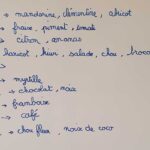 → mandarine, clémentine, abricot
→ fraise, piment, tomate
→ citron, ananas
haricot, kiwi, salade, chou, broco
→
→ myrtille
→ chocolat, noix
→ framboise
→ café
→ chou fleur, noix de coco